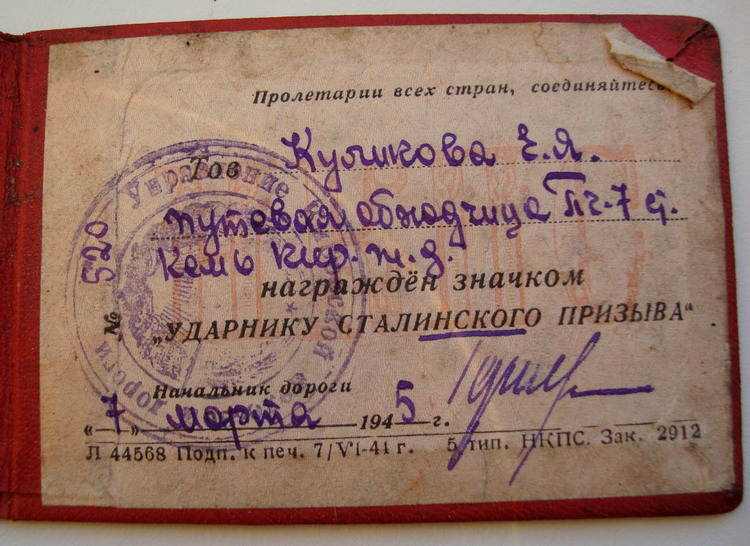 Пролетарии всех стран, соединяйтесь
Тов Куликова Е.Я.
путевая обходчица ПЧ-7 ст.
Кемь кир. ж. д.
награждён значком
„УДАРНИКУ СТАЛИНСКОГО ПРИЗЫВА“
Начальник дороги
«7» марта 1945 г.
Л 44568 Подп. к печ. 7/VI-41 г. 5 тип. НКПС. Зак. 2912
№ 520
Управление дороги